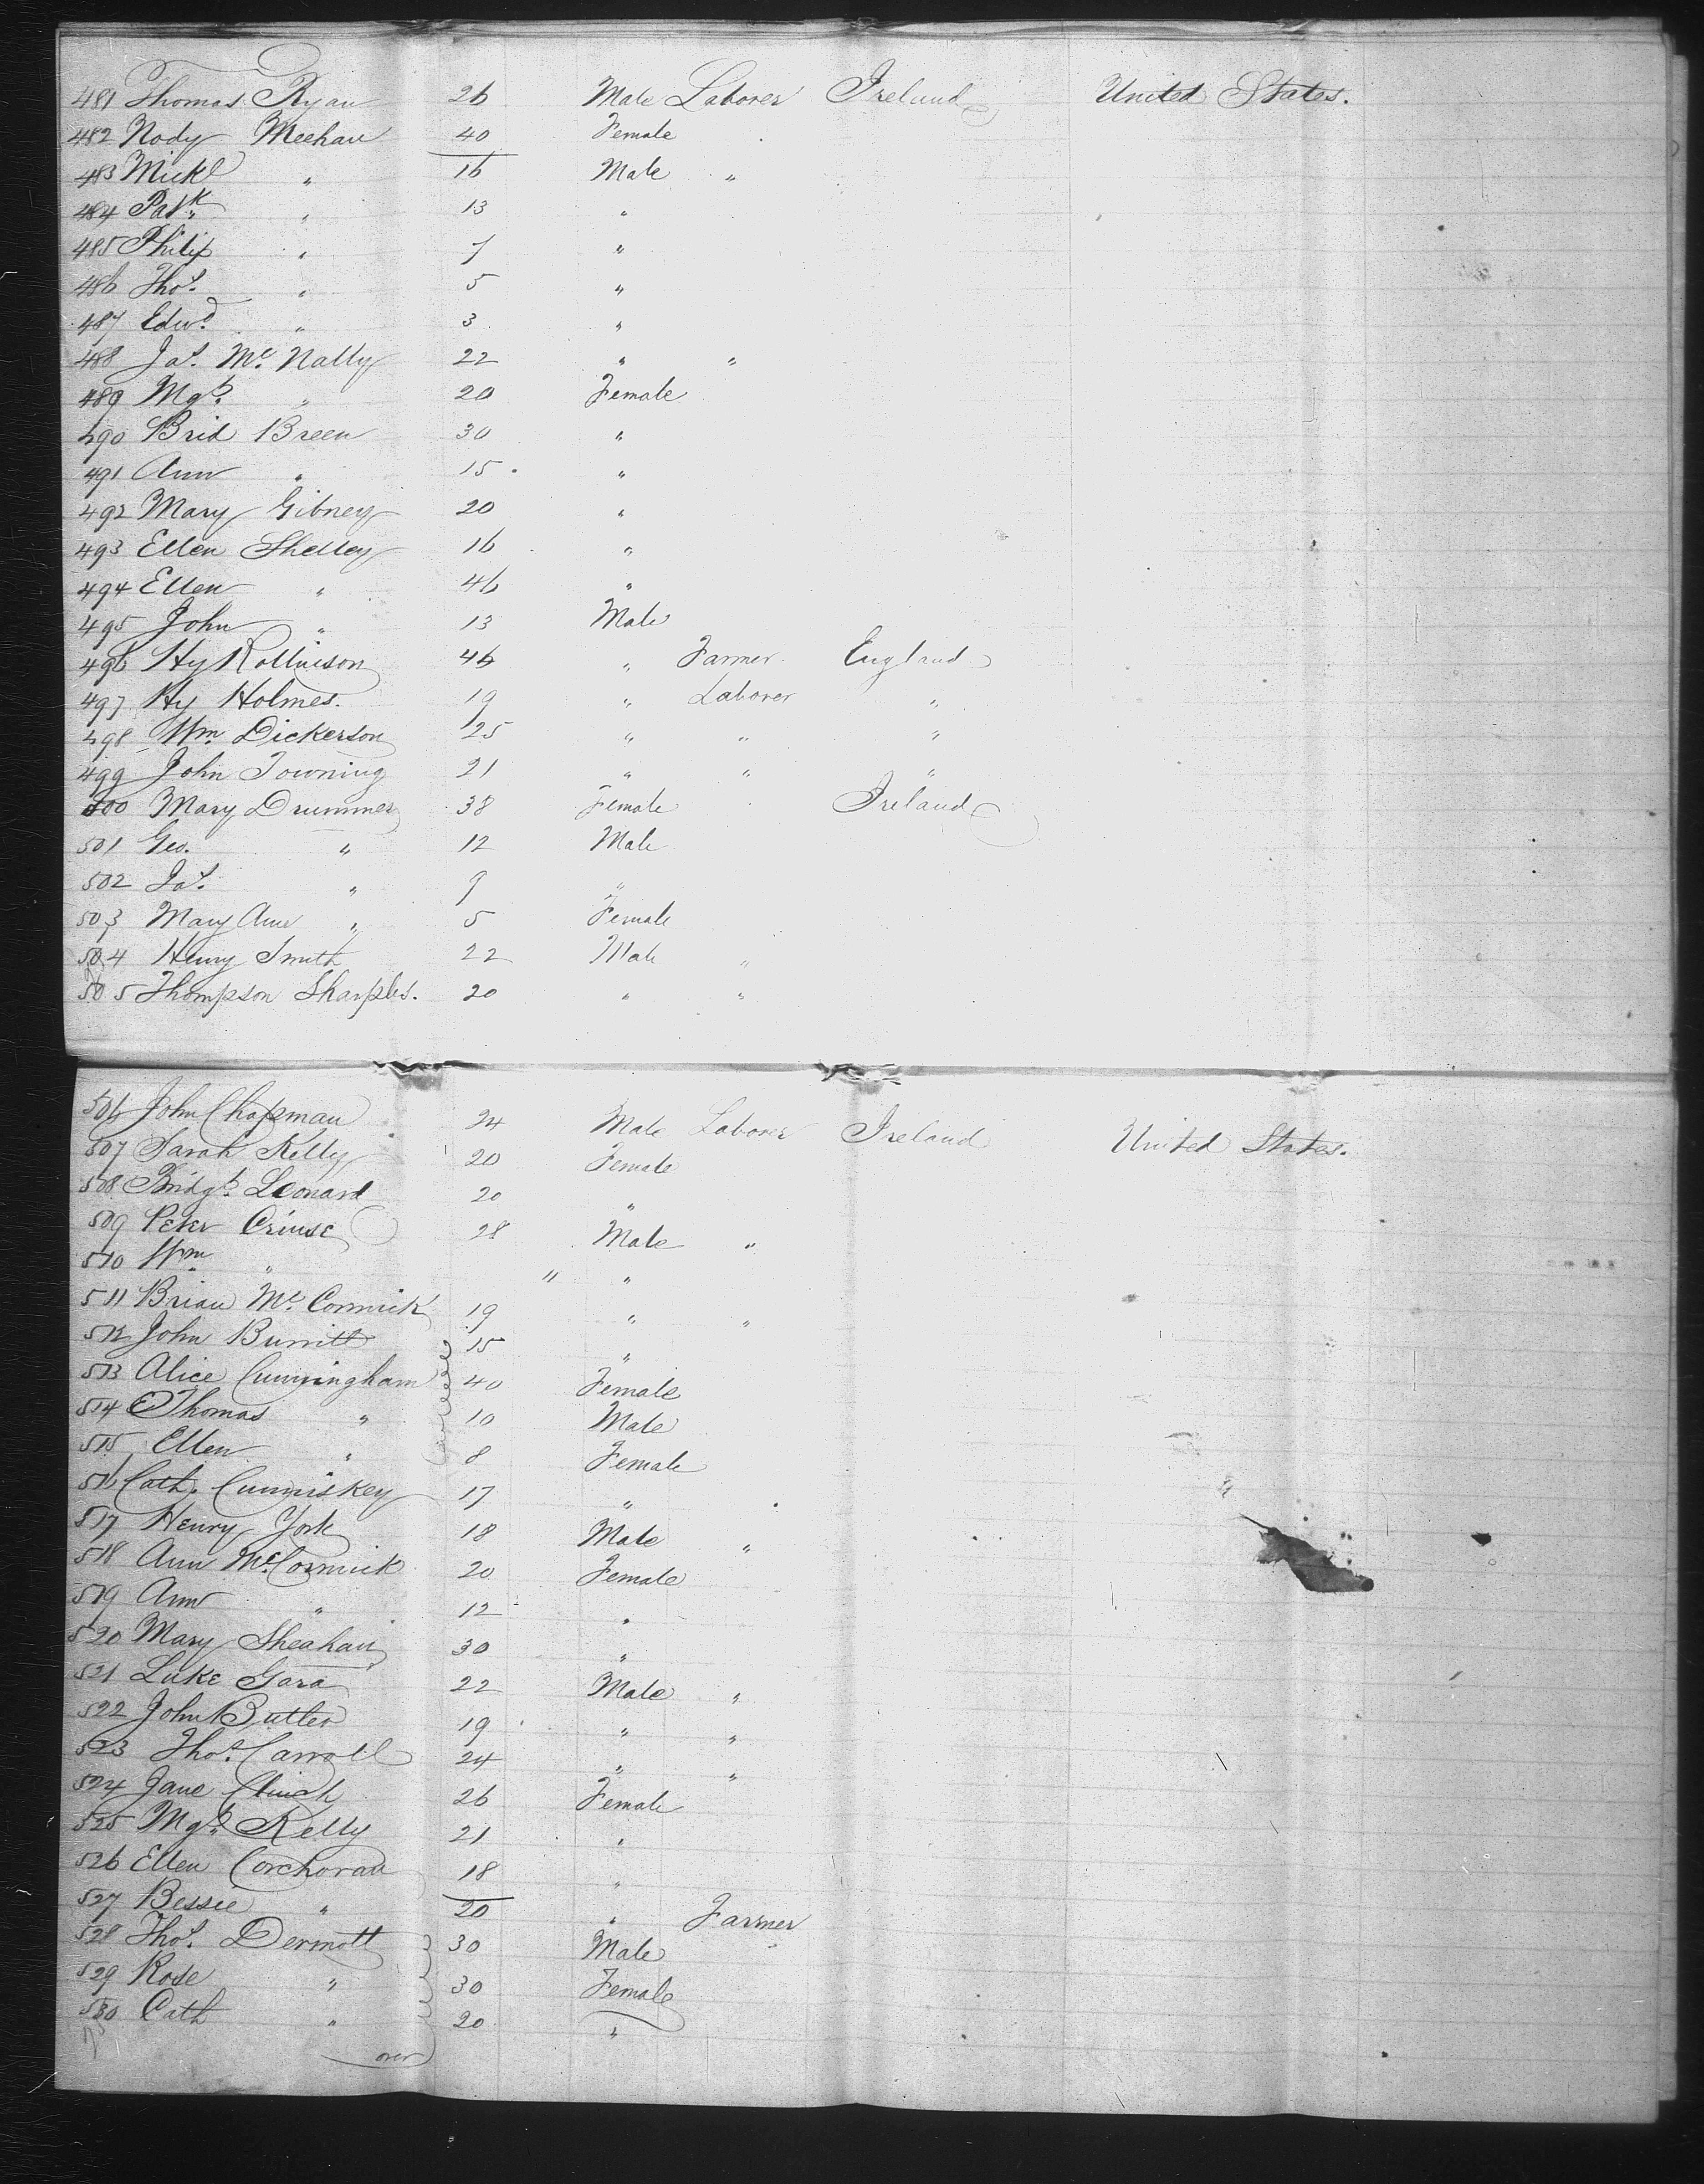 481 Thomas Ryan 26 Male Laborer Ireland United States.
482 Nody Meehan 40 Female
483 Mickl " 16 Male "
484 Patk " 13 "
485 Philip " 7 "
486 Thos. " 5 "
487 Edwd. " 3 "
488 Jas. Mc. Nally 22 " "
489 Mgt. " 20 Female
490 Brid Breen 30 "
491 Ann " 15 "
492 Mary Gibney 20 "
493 Ellen Shelley 16 "
494 Ellen " 46 "
495 John " 13 Male
496 Hy Rollinson 46 " Farmer England
497 Hy Holmes. 19 " Laborer "
498 Wm. Dickerson 25 " " "
499 John Towning 21 " " "
500 Mary Drummer 38 Female Ireland
501 Geo. " 12 Male
502 Jas. " 9 "
503 Mary Ann " 5 Female
504 Henry Smith 22 Male "
505 Thompson Sharples. 20 " "
506 John Chapman 24 Male Laborer Ireland United States.
507 Sarah Kelly 20 Female
508 Bridgt. Leonard 20 "
509 Peter 28 Male "
510 Wm. " " "
511 Brian Mc. Cormick 19 " "
512 John Burritt 15 "
513 Alice Cunningham 40 Female
514 Thomas " 10 Male
515 Ellen " 8 Female
516 Cath. Cummiskey 17 "
517 Henry York 18 Male "
518 Ann Mc.Cormick 20 Female
519 Ann " 12 "
520 Mary Sheahan 30 "
521 Luke Gara 22 Male "
522 John Butler 19 " "
523 Thos. Carroll 24 " "
524 Jane Clinch 26 Female
525 Mgt. Kelly 21 "
526 Ellen Corchoran 18 "
527 Bessie " 20 " Farmer
528 Thos. Dermott 30 Male
529 Rose " 30 Female
530 Cath " 20 "
over